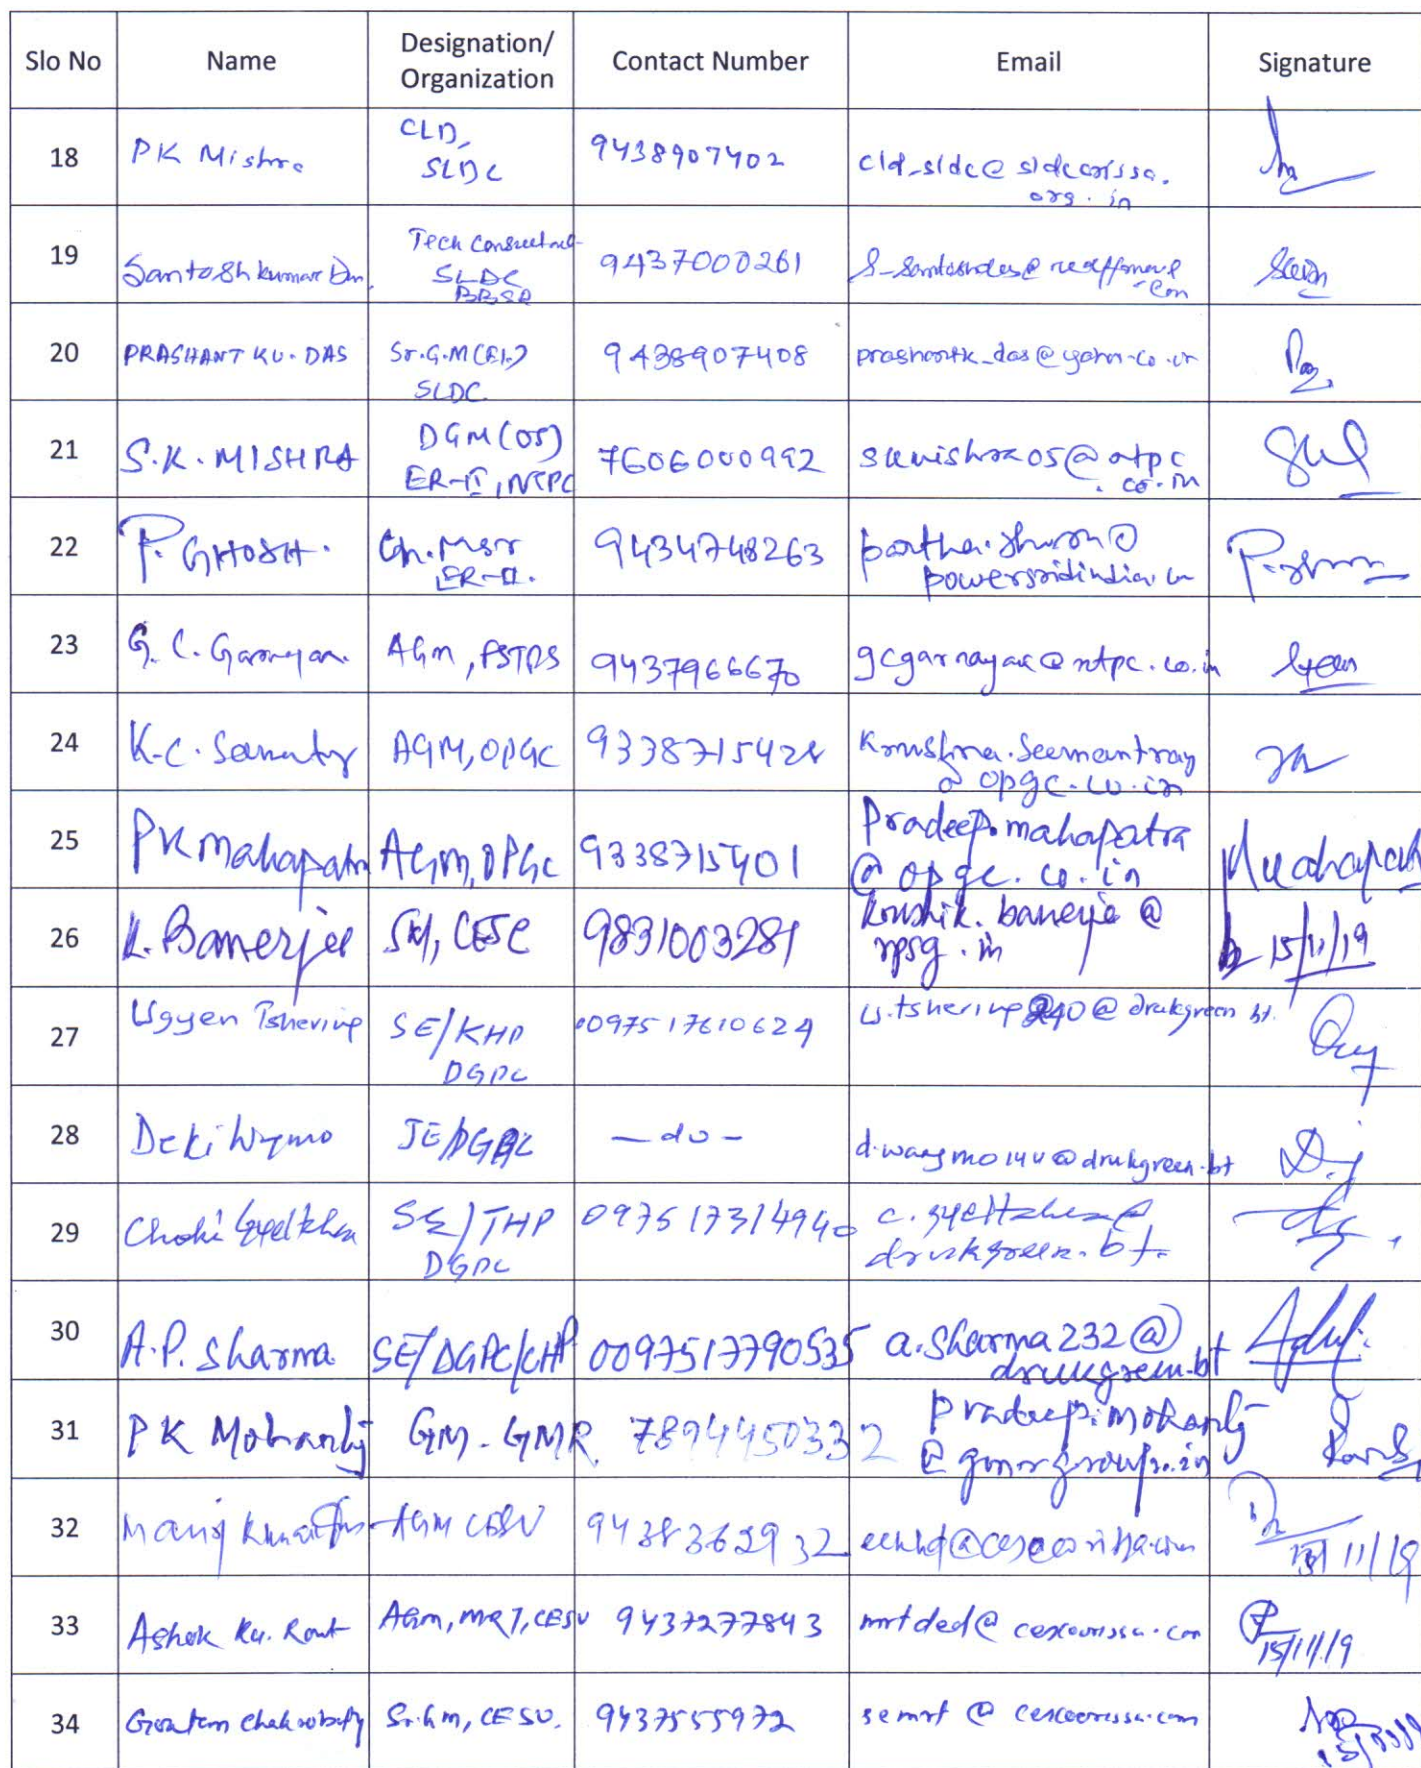 Slo No Name Designation/ Organization Contact Number Email Signature
18 PK Mishra CLD, SLDC 9438907402 cld_sldc@sldcorissa.org.in
19 Santosh kumar Das Tech Consultant SLDC BBSR 9437000261
20 PRASHANT KU. DAS Sr.G.M(El.) SLDC 9438907408 prashantk_das@yahoo.co.in
21 S.K. MISHRA DGM(OS) ER-II, NTPC 7606000992 skmishra05@ntpc.co.in
22 P. GHOSH. Ch.Mgr ER-II. 9434748263 partha.ghosh@powergridindia.in
23 G. C. Garnayak AGM, FSTPS 9437966670 gcgarnayak@ntpc.co.in
24 K.C. Samantray AGM, OPGC 9338715428 Krushna.Seemantray@opgc.co.in
25 PK Mahapatra AGM, OPGC 9338715401 Pradeep.mahapatra@opgc.co.in
26 K. Banerjee SM, CESC 9831003281 koushik.banerjee@rpsg.in 15/11/19
27 Ugyen Tshering SE/KHP DGPC 0097517610624 u.tshering240@drukgreen.bt
28 Deki Wangmo JE/DGPC — do - d.wangmo1440@drukgreen.bt
29 Choki Gyeltshen SE/THP DGPC 097517314940 c.gyeltshen@drukgreen.bt
30 A.P. Sharma SE/DGPC/CHP 0097517790535 a.Sharma232@drukgreen.bt
31 PK Mohanty GM-GMR 7894450332 pradeep.mohanty@gmrgroup.in
32 Manoj Kumar AGM CESU 9438362932 15/11/19
33 Ashok Ku. Rout AGM, MRT, CESU 9437277843 mrtded@cescoorissa.com 15/11/19
34 Goutam Chakraborty Sr.GM, CESU. 9437555972 semrt@cescoorissa.com